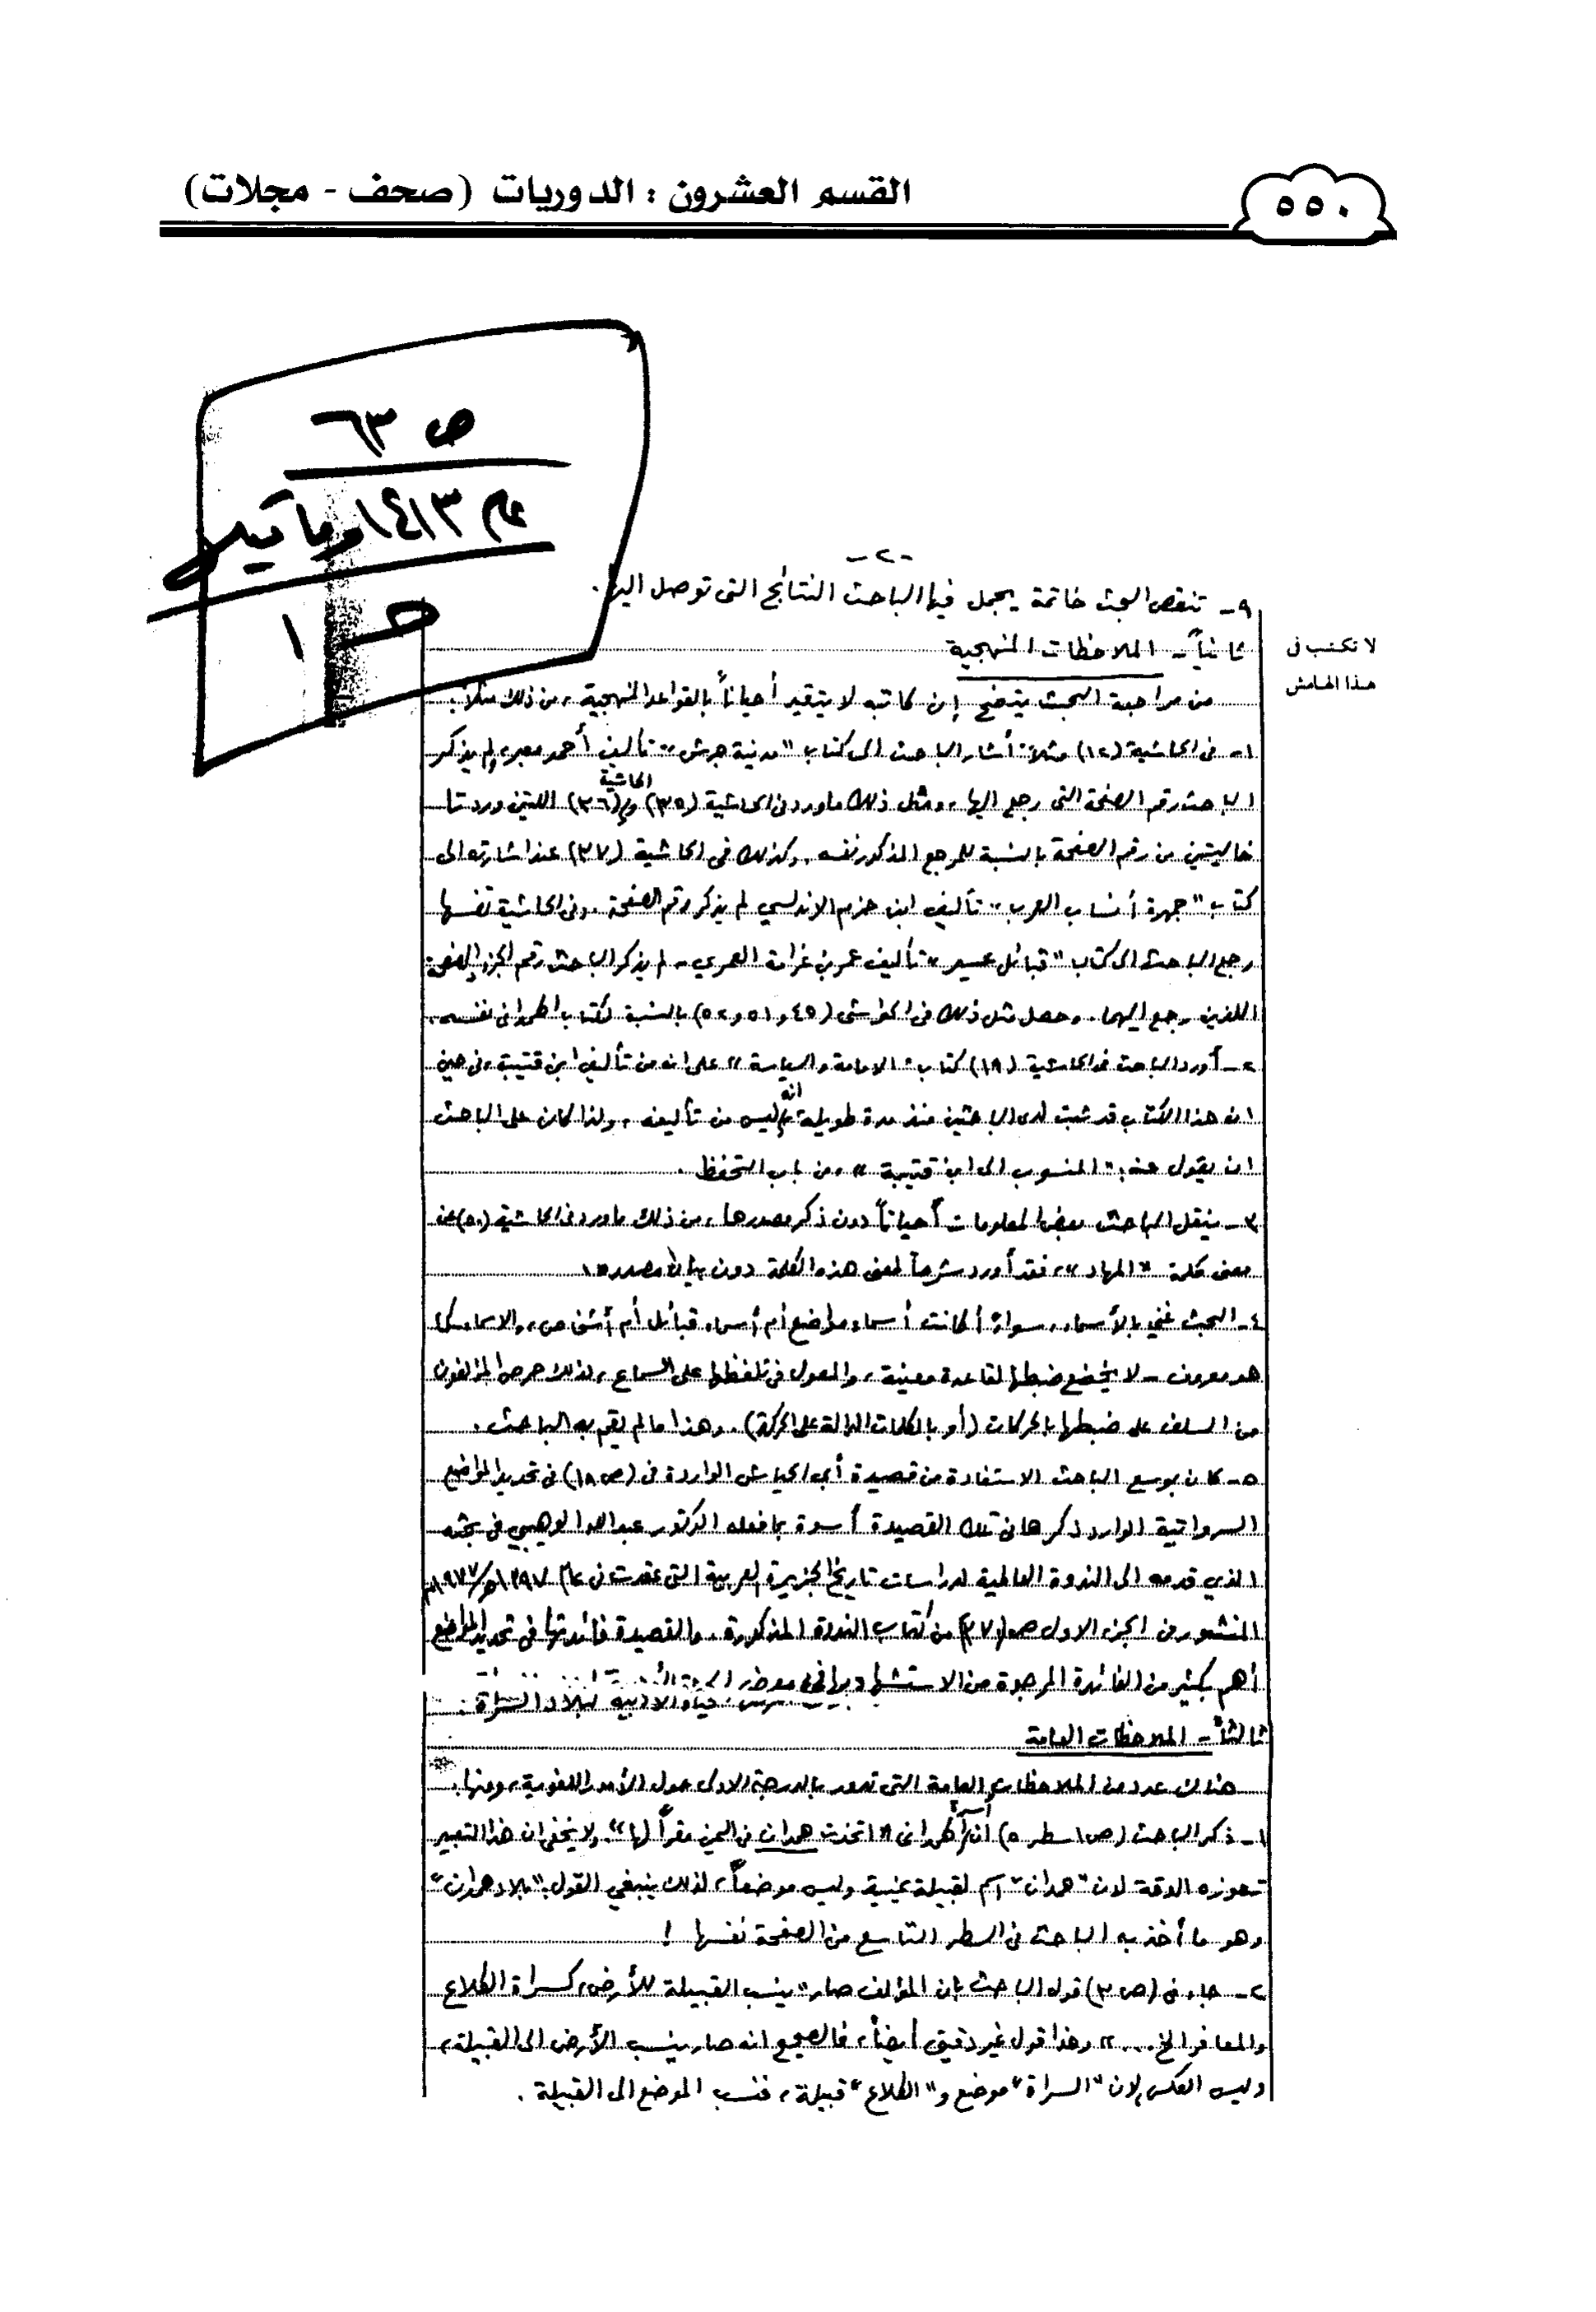 ٥٥٠
القسم العشرون : الدوريات (صحف - مجلات)
ص ٦٣
عام ١٤١٣ وما قبله
حـ ١
-٢-
٩- تنقص البحث خاتمة يجمل فيها الباحث النتائج التى توصل اليها.
لا تكتب فى
هذا الهامش
ثانياً - الملاحظات المنهجية
من مراجعة البحث يتضح إن كاتبه لا يتقيد أحياناً بالقواعد المنهجية، من ذلك مثلاً:
١- فى الحاشية (١٢) مثلاً: أشار الباحث الى كتاب "مدينة جرش" تأليف أحمد معبر، ولم يذكر
الباحث رقم الصفحة التى رجع اليها، ومثل ذلك ما ورد فى الحاشية (٣٥) و الحاشية (٣٦) اللتين وردتا
خاليتين من رقم الصفحة بالنسبة للمرجع المذكور نفسه. وكذلك فى الحاشية (٣٧) عند اشارته الى
كتاب "جمهرة أنساب العرب" تأليف ابن حزم الاندلسي لم يذكر رقم الصفحة. وفى الحاشية نفسها
رجع الباحث الى كتاب "قبائل عسير" تأليف عمر بن غرامة العمري - لم يذكر الباحث رقم الجزء والصفحة
اللذين رجع اليهما. وحصل مثل ذلك فى الحواشى (٤٥ و ٥١ و ٥٢) بالنسبة لكتاب الهمدانى نفسه.
٢- أورد الباحث فى الحاشية (١٩) كتاب "الامامة والسياسة" على انه من تأليف ابن قتيبة، فى حين
ان هذا الكتاب قد ثبت لدى الباحثين منذ مدة طويلة انه ليس من تأليفه، ولذا كان على الباحث
ان يقول عنه: "المنسوب الى ابن قتيبة"، من باب التحفظ.
٣- ينقل الباحث بعض المعلومات أحياناً دون ذكر مصدرها، من ذلك ما ورد فى الحاشية (٥٠) عن
معنى كلمة "المهاد"، فقد أورد شرحاً لمعنى هذه الكلمة دون بيان مصدره.
٤- البحث غني بالأسماء، سواءً أكانت أسماء مواضع أم أسماء قبائل أم أشخاص، والاسماء كما
هو معروف - لا يخضع ضبطها لقاعدة معينة، والمعول فى تلفظها على السماع، لذلك حرص المؤلفون
من السلف على ضبطها بالحركات (أو بالكلمات الدالة على الحركة). وهذا مالم يقم به الباحث.
٥- كان بوسع الباحث الاستفادة من قصيدة أبى الحياش الواردة فى (ص ١٨) فى تحديد المواضع
السرواتية الوارد ذكرها فى تلك القصيدة أسوة بما فعله الدكتور عبدالله الوهيبي فى بحثه
الذي قدمه الى الندوة العالمية لدراسات تاريخ الجزيرة العربية التى عقدت فى عام ١٣٩٧هـ/١٩٧٧م
المنشور فى الجزء الاول ص (٣٧) من كتاب الندوة المذكورة. والقصيدة فائدتها فى تحديد المواضع
أهم بكثير من الفائدة المرجوة من الاستشهاد بها فى معرض
حياة الادبية لبلاد السراة.
ثالثاً - الملاحظات العامة
هناك عدد من الملاحظات العامة التى تدور بالدرجة الاولى حول الأمور اللغوية، ومنها:
١- ذكر الباحث (ص ١ سطر ٥) أن أسرة الهمدانى "اتخذت همدان فى اليمن مقراً لها". ولا يخفى ان هذا التعبير
تعوزه الدقة لان "همدان" اسم لقبيلة يمنية وليس موضعاً، لذلك ينبغي القول: "بلاد همدان"
وهو ما أخذ به الباحث فى السطر التاسع من الصفحة نفسها !
٢- جاء فى (ص ٣) قول الباحث بإن المؤلف صار "ينسب القبيلة للأرض، كسراة الكلاع
والمعافر الخ...." وهذا قول غير دقيق أيضاً، فالصحيح انه صار ينسب الأرض الى القبيلة،
وليس العكس، لان "السراة" موضع و"الكلاع" قبيلة، فنسب الموضع الى القبيلة.